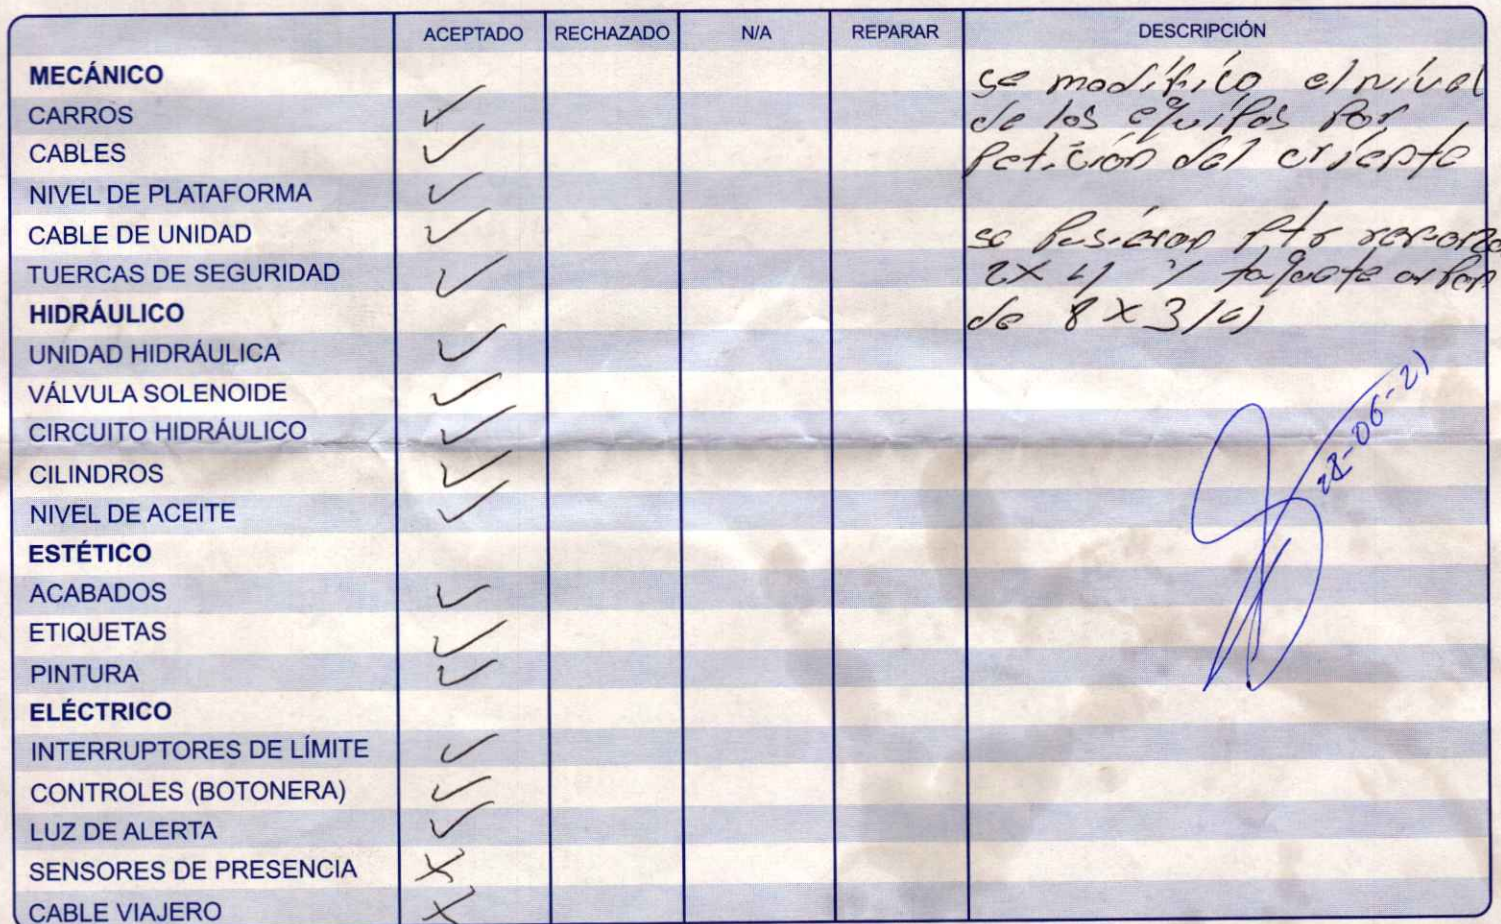 ACEPTADO RECHAZADO N/A REPARAR DESCRIPCIÓN
MECÁNICO se modifico el nivel
CARROS ✓ de los equipos por
CABLES ✓ petición del criente
NIVEL DE PLATAFORMA ✓
CABLE DE UNIDAD ✓ se pusieron ptr
TUERCAS DE SEGURIDAD ✓ 2x4 y taquete
HIDRÁULICO de 8 x 3/4
UNIDAD HIDRÁULICA ✓
VÁLVULA SOLENOIDE ✓
CIRCUITO HIDRÁULICO ✓ 28-06-21
CILINDROS ✓
NIVEL DE ACEITE ✓
ESTÉTICO
ACABADOS ✓
ETIQUETAS ✓
PINTURA ✓
ELÉCTRICO
INTERRUPTORES DE LÍMITE ✓
CONTROLES (BOTONERA) ✓
LUZ DE ALERTA ✓
SENSORES DE PRESENCIA X
CABLE VIAJERO X